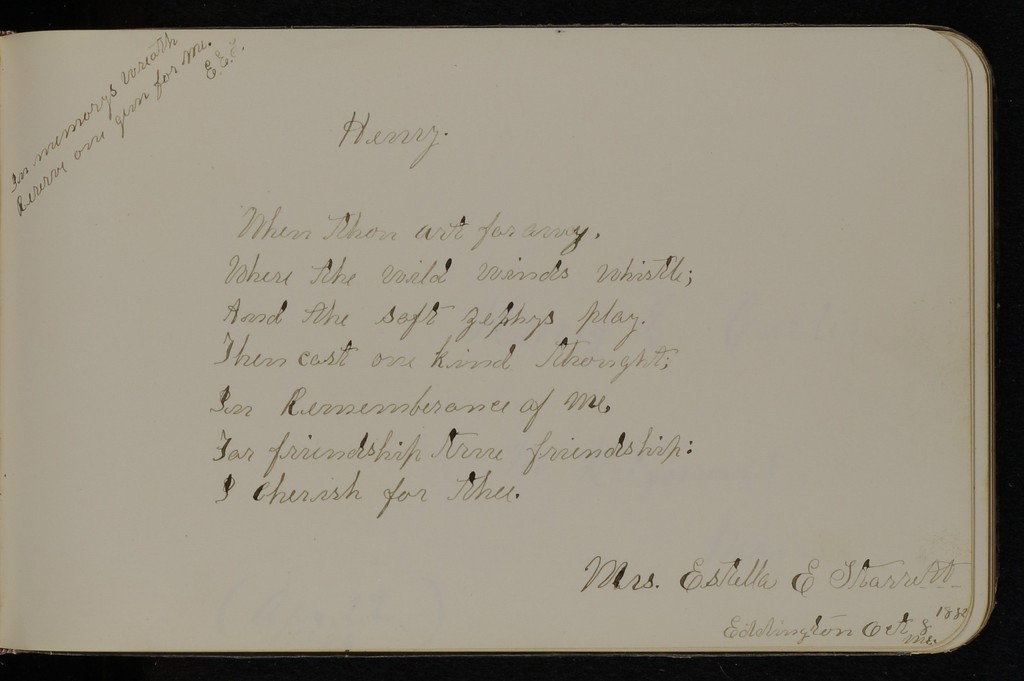 In memorys wreath
Reserve one gem for me.
E.E.S.
Henry.
When thou art far away,
Where the wild winds whistle;
And the soft zephys play.
Then cast one kind thought;
In Rememberance of me,
For friendship true friendship:
I cherish for thee.
Mrs. Estella E Starrett
Eddington Oct 8 1882
Me.